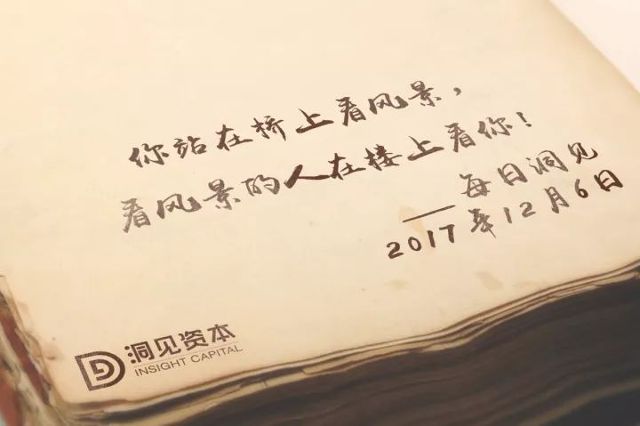 你站在桥上看风景，
看风景的人在楼上看你！
——每日洞见
2017年12月6日
洞见资本
INSIGHT CAPITAL